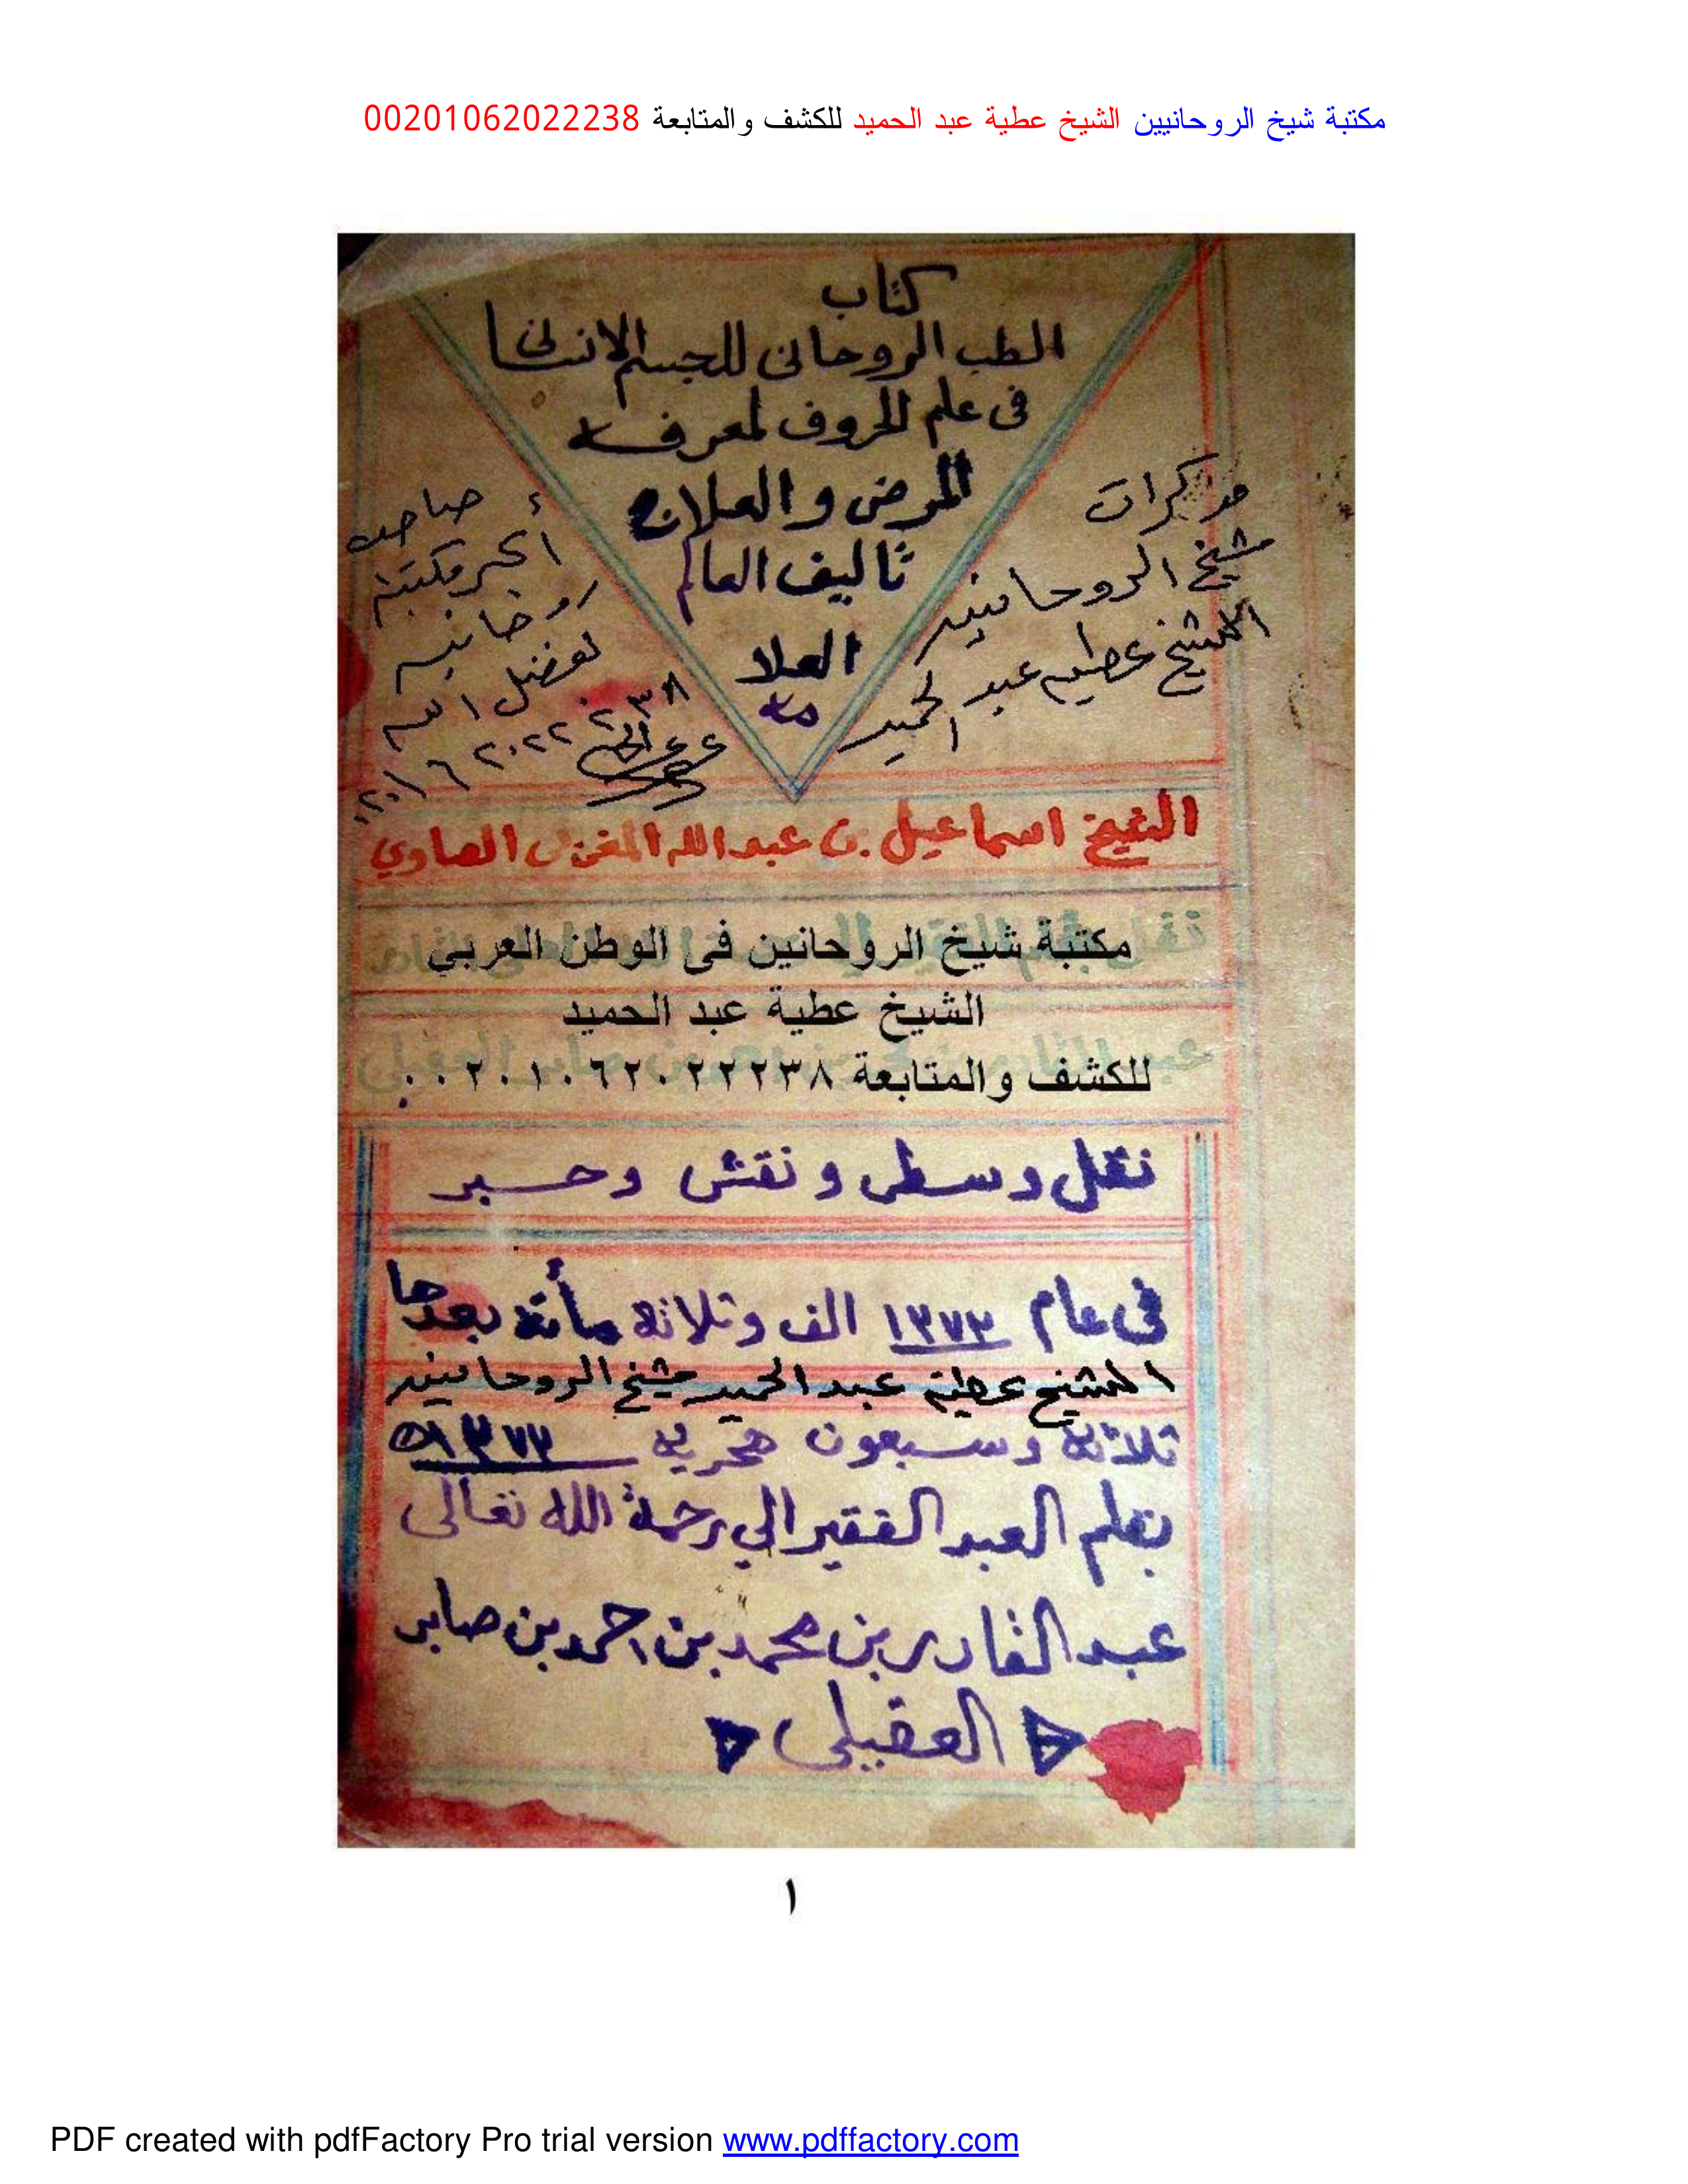 مكتبة شيخ الروحانيين الشيخ عطية عبد الحميد للكشف والمتابعة 00201062022238
كتاب
الطب الروحانى للجسم الانسانى
فى علم الحروف لمعرفة
المرض والعلاج
تاليف العالم
العلا
مة
مذكرات
شيخ الروحانيين
الشيخ عطيه عبد الحميد
صاحب
أكبر مكتبة
روحانيه
بفضل الله
٠٠٢٠١٠٦٢٠٢٢٢٣٨
الشيخ اسماعيل بن عبدالله المغربى الصاوي
مكتبة شيخ الروحانين فى الوطن العربي
الشيخ عطية عبد الحميد
للكشف والمتابعة ٠٠٢٠١٠٦٢٠٢٢٢٣٨
نقل وسطى ونقش وحبر
فى عام ١٣٧٣ الف وثلاثة مأتة بعدها
الشيخ عطية عبد الحميد شيخ الروحانيين
ثلاثة وسبعون هجرية ١٣٧٣ه
بقلم العبد الفقير الي رحمة الله تعالى
عبد القادر بن محمد بن احمد بن صابر
العقيلى
١
PDF created with pdfFactory Pro trial version www.pdffactory.com